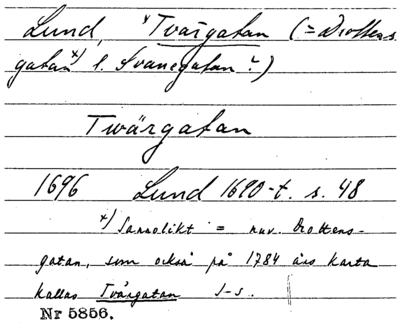 Lund, *Tvärgatan (= Drottens
gatan x) l. Svanegatan?)
Twärgatan
1696 Lund 1690-t. s. 48
x) Sannolikt = nuv. Drottens-
gatan, som också på 1784 års karta
kallas Tvärgatan J-s.
Nr 5856.